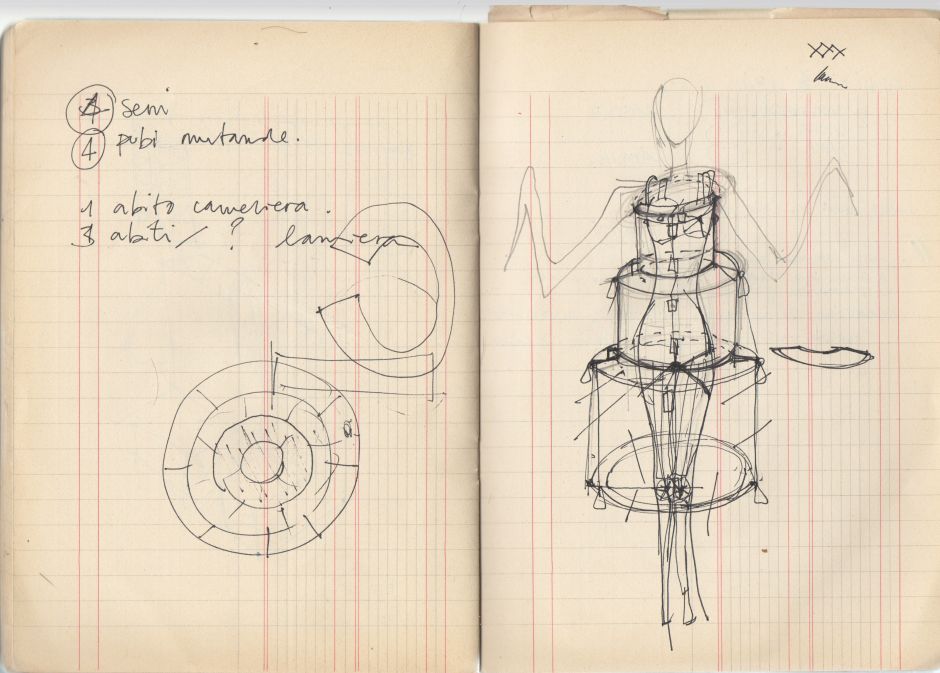 4 seni
4 pubi mutande.
1 abito cameriera.
3 abiti / ?
XXX